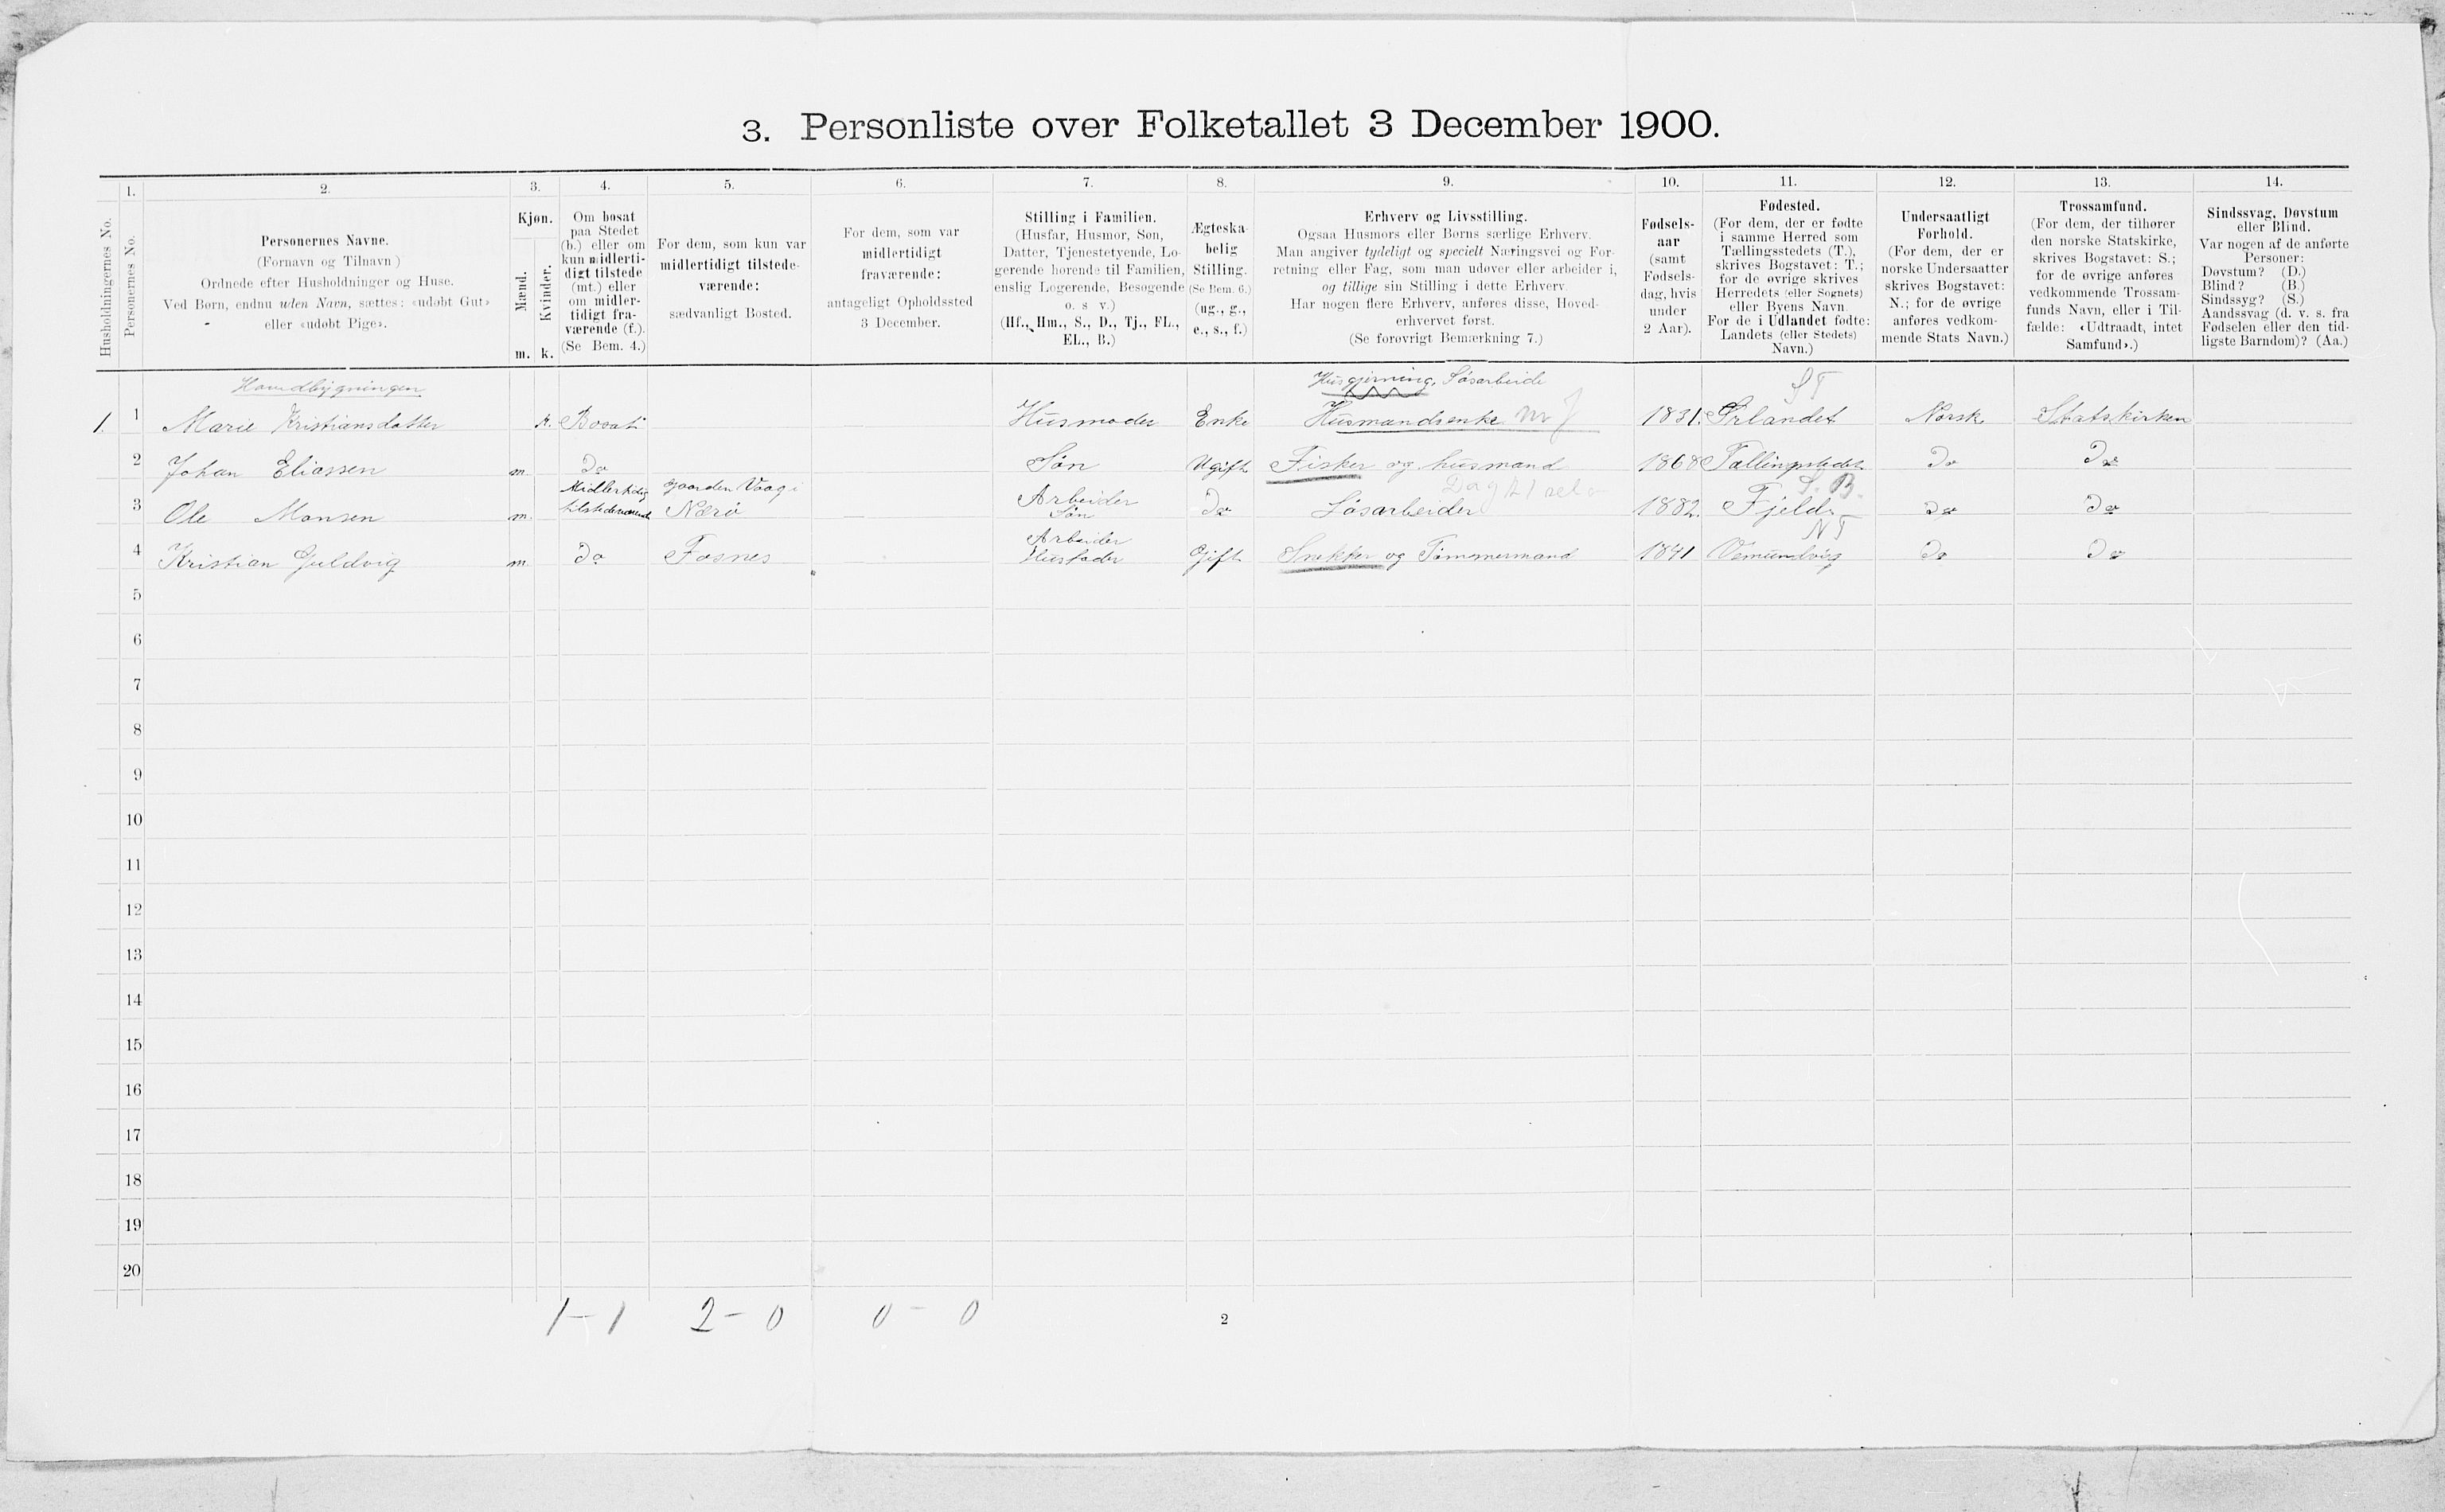 3. Personliste over Folketallet 3 December 1900.
1. 2. 3. 4. 5. 6. 7. 8. 9. 10. 11. 12. 13. 14.
Husholdningernes No.
Personernes No.
Personernes Navne.
(Fornavn og Tilnavn)
Ordnede efter Husholdninger og Huse.
Ved Børn, endnu uden Navn, sættes: «udøbt Gut»
eller «udøbt Pige».
Kjøn.
Mænd.
Kvinder.
m. k.
Om bosat
paa Stedet
(b.) eller om
kun midlerti-
digt tilstede
(mt.) eller
om midler-
tidigt fra-
værende (f.).
(Se Bem. 4.)
For dem, som kun var
midlertidigt tilstede-
værende:
sædvanligt Bosted.
For dem, som var
midlertidigt
fraværende:
antageligt Opholdssted
3 December.
Stilling i Familien.
(Husfar, Husmor, Søn,
Datter, Tjenestetyende, Lo-
gerende hørende til Familien,
enslig Logerende, Besøgende
o. s v.)
(Hf., Hm., S., D., Tj., FL.,
EL., B.)
Ægteska-
belig
Stilling.
(Se Bem. 6.)
(ug., g.,
e., s., f.)
Erhverv og Livsstilling.
Ogsaa Husmors eller Børns særlige Erhverv.
Man angiver tydeligt og specielt Næringsvei og For-
retning eller Fag, som man udøver eller arbeider i,
og tillige sin Stilling i dette Erhverv.
Har nogen flere Erhverv, anføres disse, Hoved-
erhvervet først.
(Se forøvrigt Bemærkning 7.)
Fødsels-
aar
(samt
Fødsels-
dag, hvis
under
2 Aar).
Fødested.
(For dem, der er fødte
i samme Herred som
Tællingsstedets (T.),
skrives Bogstavet: T.;
for de øvrige skrives
Herredets (eller Sognets)
eller Byens Navn.
For de i Udlandet fødte:
Landets (eller Stedets)
Navn.)
Undersaatligt
Forhold.
(For dem, der er
norske Undersaatter
skrives Bogstavet:
N.; for de øvrige
anføres vedkom-
mende Stats Navn.)
Trossamfund.
(For dem, der tilhører
den norske Statskirke,
skrives Bogstavet: S.;
for de øvrige anføres
vedkommende Trossam-
funds Navn, eller i Til-
fælde: «Udtraadt, intet
Samfund».)
Sindssvag, Døvstum
eller Blind.
Var nogen af de anførte
Personer:
Døvstum? (D.)
Blind? (B.)
Sindssyg? (S.)
Aandssvag (d. v. s. fra
Fødselen eller den tid-
ligste Barndom)? (Aa.)
Husgjerning, Løsarbeide ST
1. 1 Marie Kristiansdatter k. Bosat — — Husmoder Enke Husmandsenke 1831. Ørlandet Norsk Statskirken —
2 Johan Eliassen m. Do — — Søn Ugift Fisker og husmand 1868 Tællingstedet Do Do —
Midlertidig Gaarden Vaag i Arbeider S. B.
3 Ole Monsen m. tilstedeværende Nærø — Søn Do Løsarbeider 1882. Fjeld Do Do —
Arbeider NT
4 Kristian Guldvig m. Do Fosnes — Husfader Gift Snekker og Tømmermand 1841 Vemundvig Do Do —
5
6
7
8
9
10
11
12
13
14
15
16
17
18
19
20
1 – 1 2 – 0 0 – 0 2